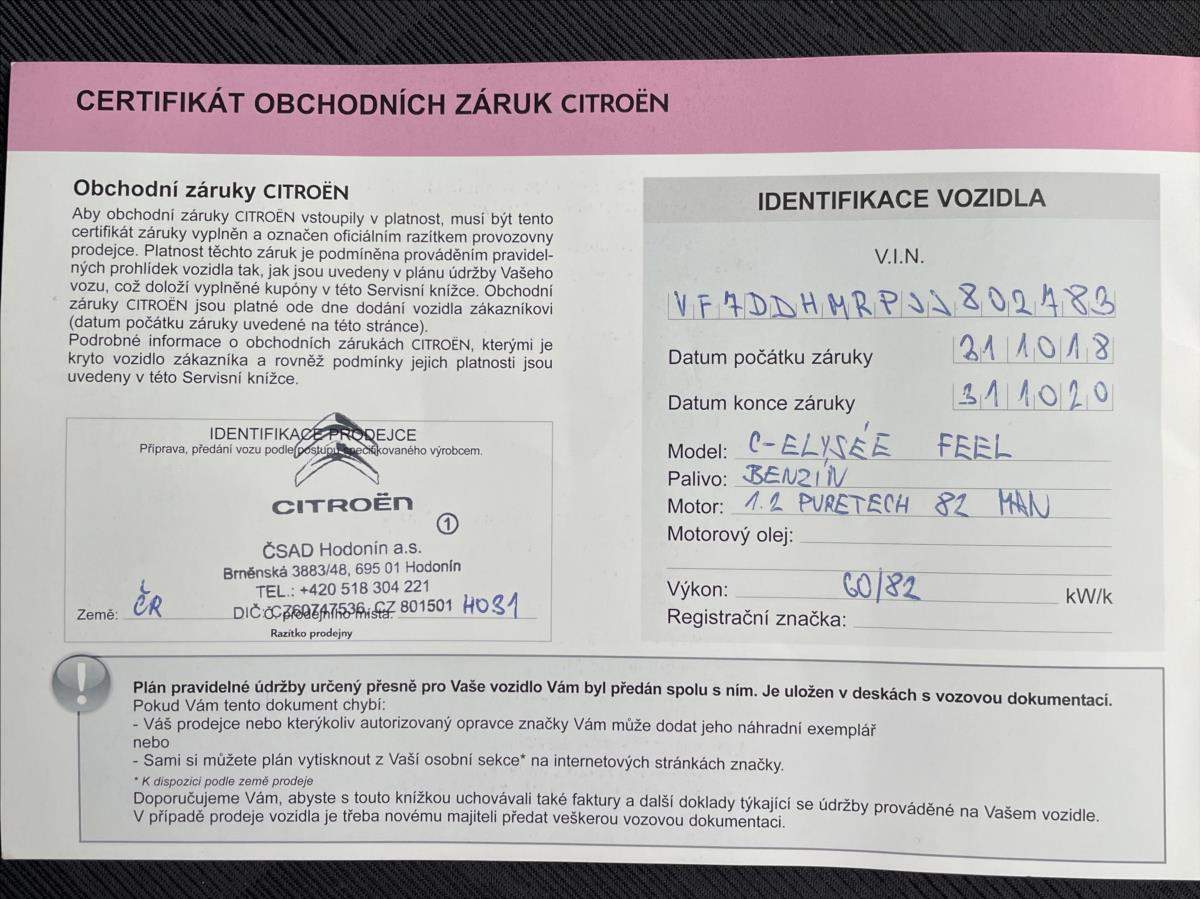 CERTIFIKÁT OBCHODNÍCH ZÁRUK CITROËN
Obchodní záruky CITROËN
Aby obchodní záruky CITROËN vstoupily v platnost, musí být tento
certifikát záruky vyplněn a označen oficiálním razítkem provozovny
prodejce. Platnost těchto záruk je podmíněna prováděním pravidel-
ných prohlídek vozidla tak, jak jsou uvedeny v plánu údržby Vašeho
vozu, což doloží vyplněné kupóny v této Servisní knížce. Obchodní
záruky CITROËN jsou platné ode dne dodání vozidla zákazníkovi
(datum počátku záruky uvedené na této stránce).
Podrobné informace o obchodních zárukách CITROËN, kterými je
kryto vozidlo zákazníka a rovněž podmínky jejich platnosti jsou
uvedeny v této Servisní knížce.
IDENTIFIKACE PRODEJCE
Příprava, předání vozu podle postupu specifikovaného výrobcem.
CITROËN
1
ČSAD Hodonín a.s.
Brněnská 3883/48, 695 01 Hodonín
TEL.: +420 518 304 221
DIČ: CZ60747536, CZ 801501
Země: ČR Č. prodejního místa: H031
Razítko prodejny
IDENTIFIKACE VOZIDLA
V.I.N.
VF7DDHMRPJJ802783
Datum počátku záruky 311018
Datum konce záruky 311020
Model: C-ELYSÉE FEEL
Palivo: BENZÍN
Motor: 1.2 PURETECH 82 MAN
Motorový olej:
Výkon: 60/82 kW/k
Registrační značka:
Plán pravidelné údržby určený přesně pro Vaše vozidlo Vám byl předán spolu s ním. Je uložen v deskách s vozovou dokumentací.
Pokud Vám tento dokument chybí:
- Váš prodejce nebo kterýkoliv autorizovaný opravce značky Vám může dodat jeho náhradní exemplář
nebo
- Sami si můžete plán vytisknout z Vaší osobní sekce* na internetových stránkách značky.
* K dispozici podle země prodeje
Doporučujeme Vám, abyste s touto knížkou uchovávali také faktury a další doklady týkající se údržby prováděné na Vašem vozidle.
V případě prodeje vozidla je třeba novému majiteli předat veškerou vozovou dokumentaci.